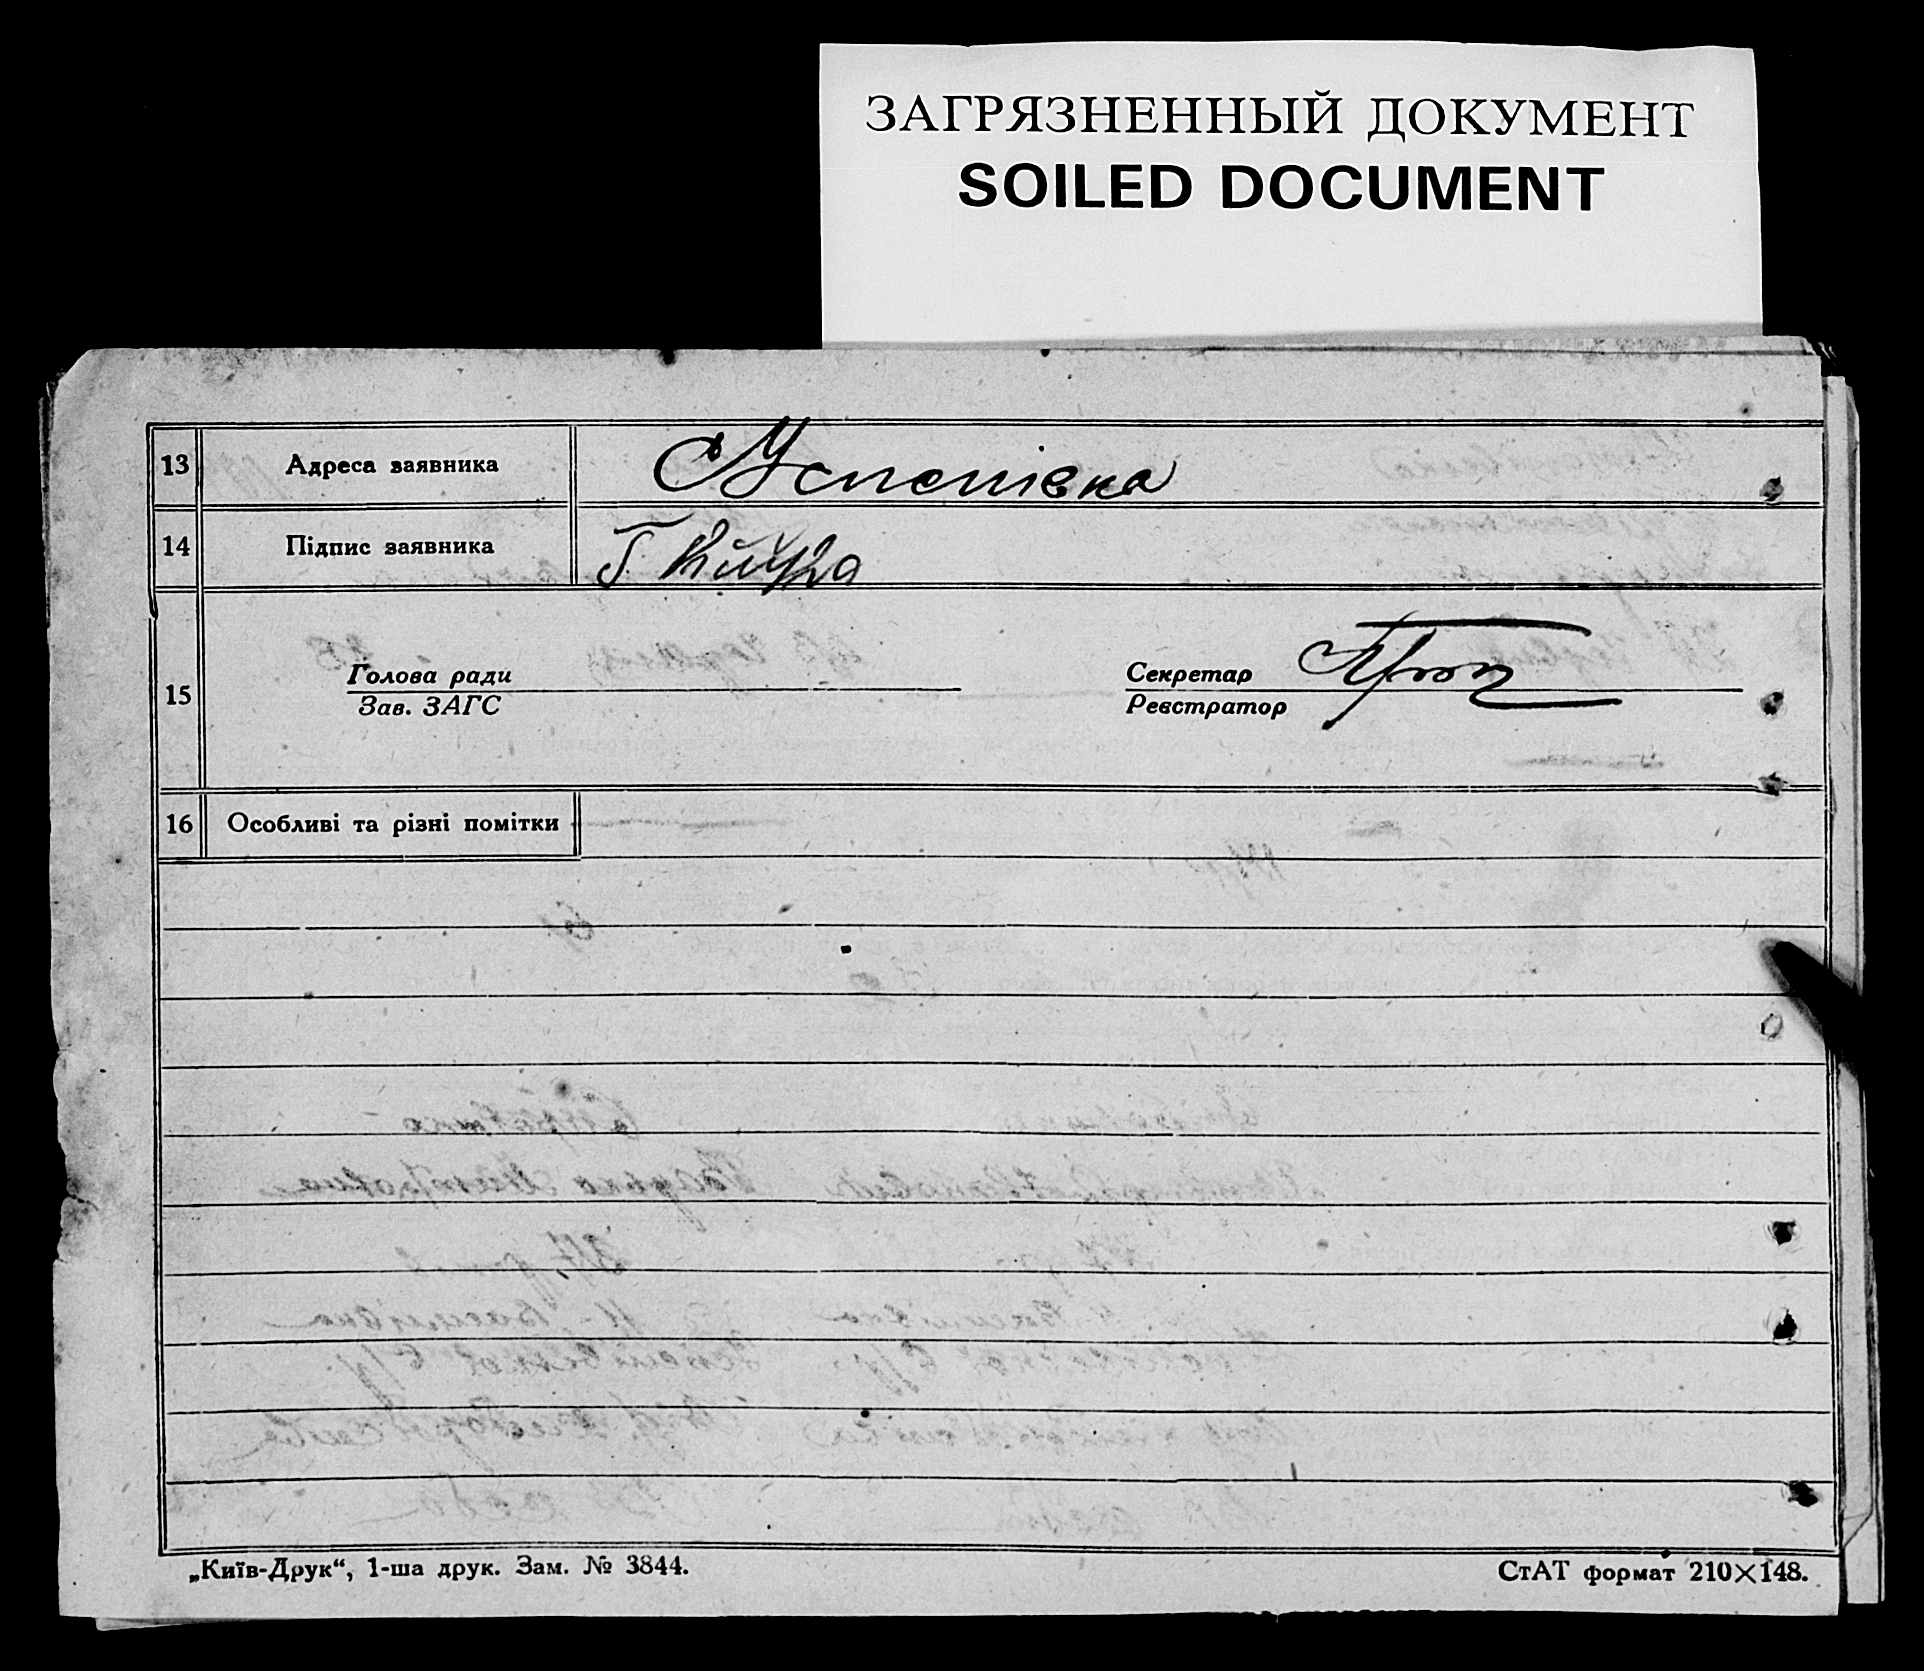 ЗАГРЯЗНЕННЫЙ ДОКУМЕНТ
SOILED DOCUMENT
13 Адреса заявника С Успенівка
14 Підпис заявника Г
15 Голова ради Секретар
Зав. ЗАГС Реєстратор
16 Особливі та різні помітки
„Київ-Друк“, 1-ша друк. Зам. № 3844. СтАТ формат 210×148.